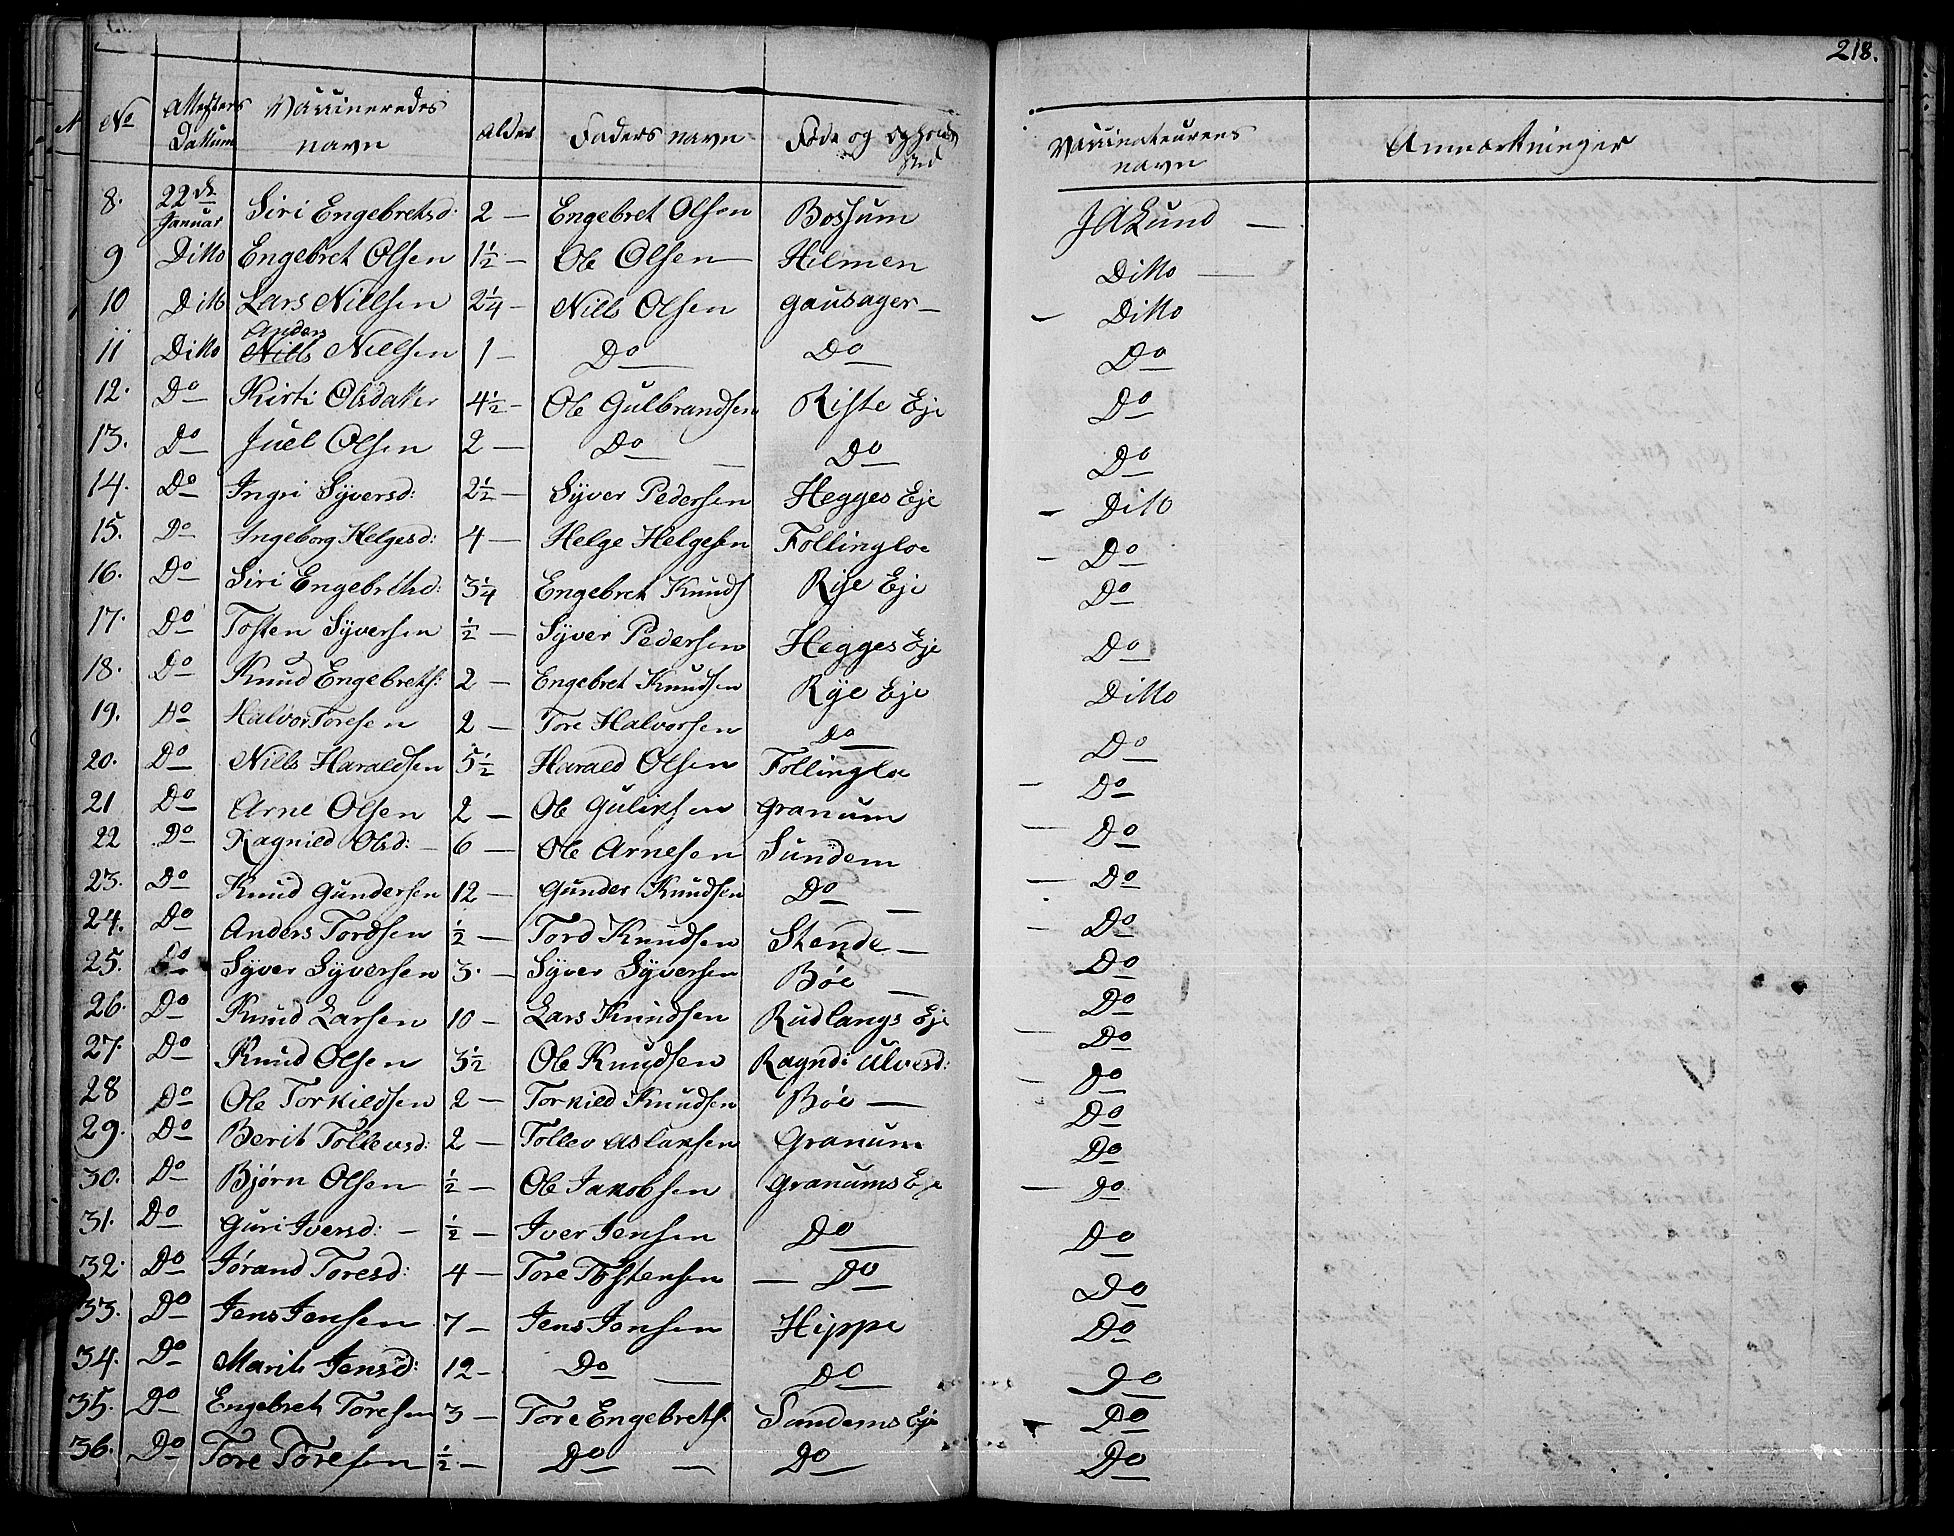 218.
No Attesters Dattum Vaccineredes navn Alder Faders navn Føde og Opholds sted Vaccinateurens navn Anmærkninger
8. 22de Januar Siri Engebretsd: 2 — Engebret Olsen Bossum JALund —
9 Ditto Engebret Olsen 1½ — Ole Olsen — Hilmen Ditto —
10 Ditto Lars Nielsen 2¼ — Nills Olsen Gausager — — Ditto
11 Ditto Anders Nielsen 1 — Do Do Do
12. Do Kirti Olsdatter 4½ — Ole Gulbrandsen Riste Eje Do
13. Do Juel Olsen 2 — Do — Do Do
14. Do Ingri Syversd: 2½ — Syver Pedersen Hegges Eje — Ditto
15. Do Ingeborg Helgesd: 4 — Helge Helgesen Follingloe — Do
16. Do Siri Engebretsd: 3¼ Engebret Knuds Rye Eje Do
17. Do Tosten Syversen ½ — Syver Pedersen Hegges Eje Do
18. Do Knud Engebrets: 2 — Engebret Knudsen Rye Eje Ditto
19. Do Halvor Toresen 2 — Tore Halvorsen Do Do
20. Do Nills Haraldsen 5½ Harald Olsen Follingloe — Do
21 Do Arne Olsen 2 — Ole Guliksen Granum — Do
22 Do Ragnild Olsd: — 6 — Ole Arnesen Sundem — Do
23. Do Knud Gundersen 12 — Gunder Knudsen Do — — Do
24. Do Anders Tordsen ½ — Tord Knudsen Stende — Do
25. Do Syver Syversen 3. — Syver Syversen Böe — Do
26. Do Knud Larsen 10 — Lars Knudsen Rudlangs Eje — Do
27. Do Knud Olsen 3½ Ole Knudsen Ragndi Ulvesd: — Do
28 Do Ole Torkildsen 2 — Torkild Knudsen Böe — Do
29. Do Berit Tollevsd: 2 — Tollev Aslaksen Granum Do
30. Do Bjørn Olsen ½ — Ole Jakobsen Granums Eje — Do
31. Do Guri Iversd: — ½ — Iver Jensen Do Do
32. Do Jørand Toresd: 4 — Tore Tostensen — Do Do
33. Do Jens Jensen 7 — Jens Jensen Hippe Do
34. Do Marit Jensd: 12 — Do — Do Do
35. Do Engebret Toresen 3 — Tore Engebrets: Sundems Eje — Do
36. Do Tore Toresen ½ — Do — Do Do